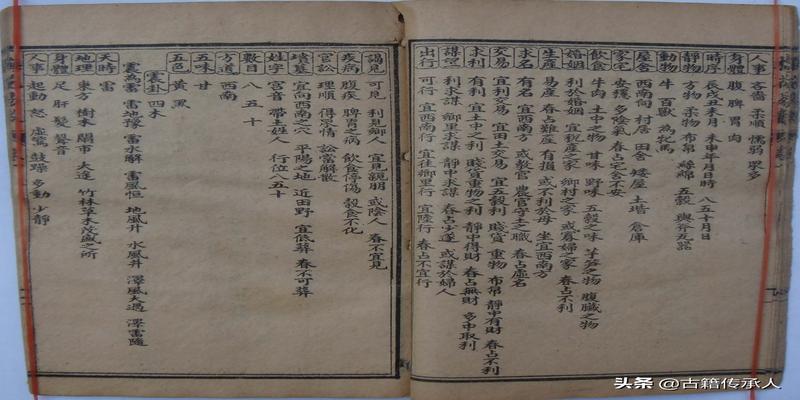 人事 吝嗇 柔順 懦弱 眾多
身體 腹 脾 胃 肉
時序 辰戌丑未月 未申年月日時 八五十月日
靜物 方物 柔物 布帛 絲綿 五穀 輿斧瓦器
動物 牛 百獸 為牝馬
屋舍 西南向 村居 田舍 矮屋 土堦 倉庫
家宅 安穩 多陰氣 春占宅舍不安
飲食 牛肉 土中之物 甘味 野味 五穀之味 芋笋之物 腹臟之物
婚姻 利於婚姻 宜稅產之家 鄉村之家 或寡婦之家 春占不利
生產 易產 春占難產 有損 或不利於母 坐宜西南方
求名 得名 宜西南方 或教官 農官守土之職 春占虛名
交易 宜利交易 宜田土交易 宜五穀利 賤貨 重物 布帛 靜中有財 春占不利
求利 有利 宜土中之利 賤貨重物之利 靜中得財 春占無財 多中取利
謀望 利求謀 鄉里求謀 靜中求謀 春占少遂 或謀於婦人
出行 可行 宜西南行 宜往鄉里行 宜陸行 春占不宜行
謁見 可見 利見鄉人 宜見親朋 或陰人 春不宜見
疾病 腹疾 脾胃之病 飲食停傷 穀食不化
官訟 理順 得眾情 訟當解散
墳墓 宜向西南之穴 平陽之地 近田野 宜低葬 春不可葬
姓字 宮音 帶土姓人 行位八五十
數目 八 五 十
方道 西南
五味 甘
五色 黃 黑
震卦 四木
震為雷 雷地豫 雷水解 雷風恒 地風升 水風井 澤風大過 澤雷隨
天時 雷
地理 東方 樹木 鬧市 大途 竹林草木茂盛之所
身體 足 肝 髮 聲音
人事 起動 怒 虛驚 鼓譟 多動 少靜
头条 @古籍传承人